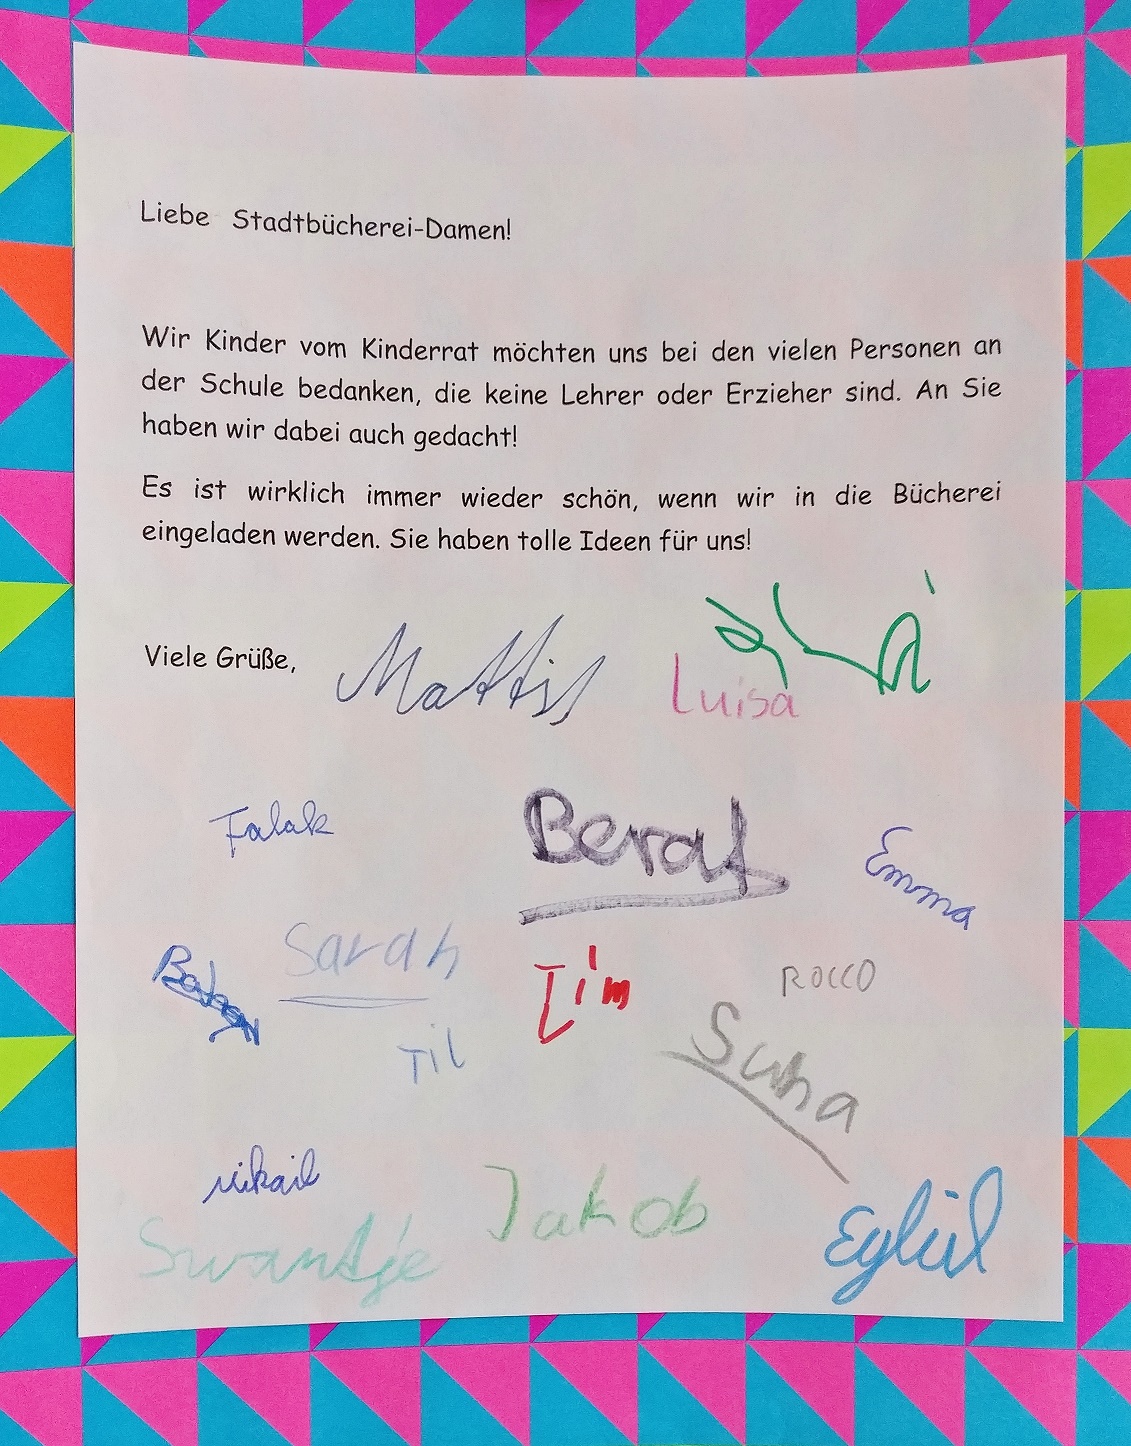 Liebe Stadtbücherei-Damen!
Wir Kinder vom Kinderrat möchten uns bei den vielen Personen an
der Schule bedanken, die keine Lehrer oder Erzieher sind. An Sie
haben wir dabei auch gedacht!
Es ist wirklich immer wieder schön, wenn wir in die Bücherei
eingeladen werden. Sie haben tolle Ideen für uns!
Viele Grüße,
Mattis
Luisa
Falak
Berat
Emma
Sarah
Tim
Rocco
Til
Suha
Mikail
Jakob
Swantje
Eylül